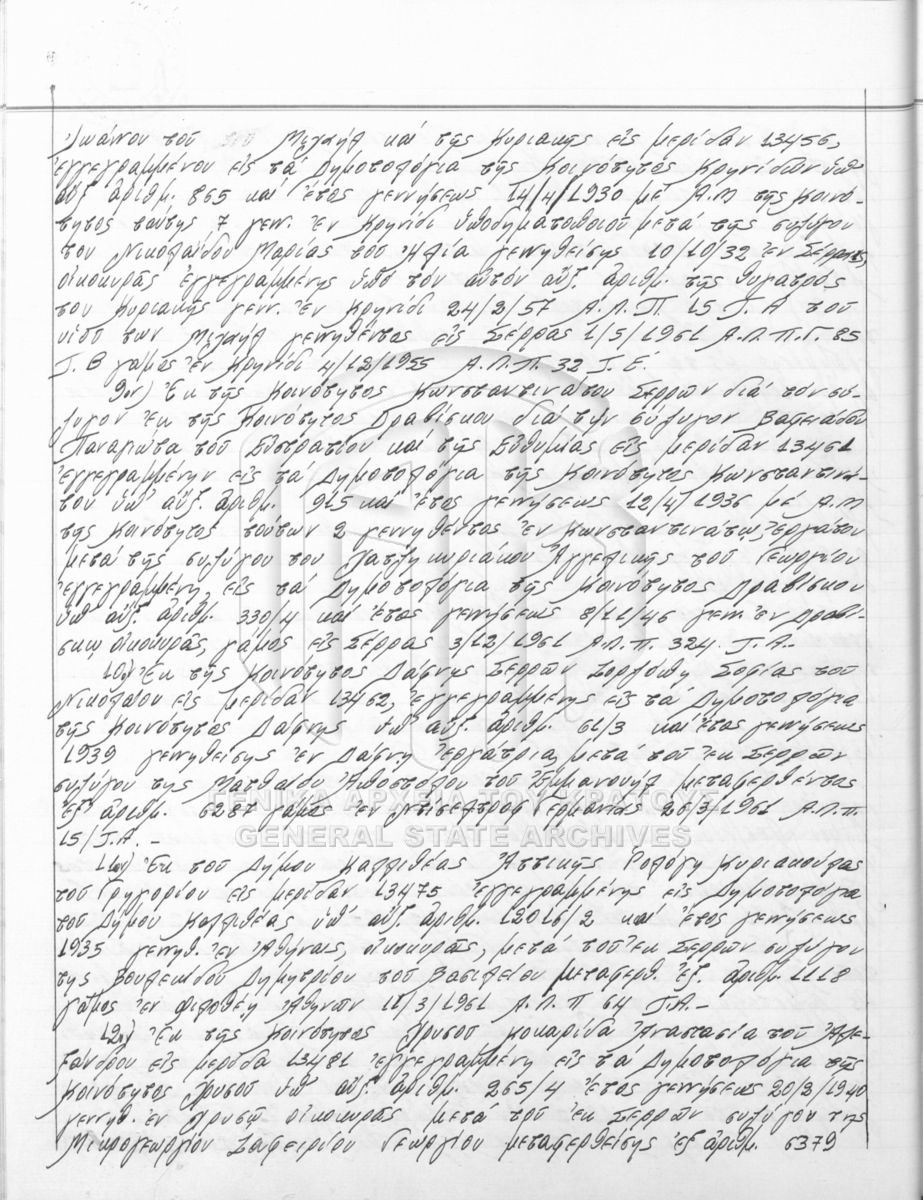 Ἰωάννου τοῦ Μιχαήλ καί τῆς Κυριακῆς εἰς μερίδαν 13456,
ἐγγεγραμμένου εἰς τά Δημοτολόγια τῆς Κοινότητος Κρηνίδων ὑπ'
αὔξ. ἀριθμ. 865 καί ἔτος γεννήσεως 14/4/1930 μέ Α.Μ τῆς Κοινό-
τητος ταύτης 7 γενν. ἐν Κρηνίδι ὑποδηματοποιοῦ μετά τῆς συζύγου
του Νικολαΐδου Μαρίας τοῦ Ἠλία γεννηθείσης 10/10/32 ἐν Σέρραις,
οἰκοκυρᾶς ἐγγεγραμμένης ὑπό τόν αὐτόν αὔξ. ἀριθμ. τῆς θυγατρός
του Κυριακῆς γενν. ἐν Κρηνίδι 24/2/57 Α.Λ.Π. 15 Τ.Α τοῦ
υἱοῦ των Μιχαήλ γεννηθέντος εἰς Σέρρας 1/5/1961 Α.Λ.Π.Γ. 85
Τ.Β γάμος ἐν Κρηνίδι 4/12/1955 Α.Λ.Π. 32 Τ.Ε.
9ον) Ἐκ τῆς Κοινότητος Κωνσταντινάτου Σερρῶν διά τόν σύ-
ζυγον ἐκ τῆς Κοινότητος Δραβίσκου διά τήν σύζυγον
Παναγιώτα τοῦ Εὐστρατίου καί τῆς Εὐθυμίας εἰς μερίδαν 13461
ἐγγεγραμμένην εἰς τά Δημοτολόγια τῆς Κοινότητος Κωνσταντινά-
του ὑπ' αὔξ. ἀριθμ. 95 καί ἔτος γεννήσεως 12/4/1936 μέ Α.Μ
τῆς Κοινότητος τούτων 2 γεννηθέντος ἐν Κωνσταντινάτῳ, ἐργάτου
μετά τῆς συζύγου του Χατζηκυριάκου Ἀγγελικῆς τοῦ Γεωργίου
ἐγγεγραμμένη, εἰς τά Δημοτολόγια τῆς Κοινότητος Δραβίσκου
ὑπ' αὔξ. ἀριθμ. 330/4 καί ἔτος γεννήσεως 8/11/46 γενν. ἐν Δραβί-
σκῳ οἰκοκυρᾶς, γάμος εἰς Σέρρας 3/12/1961 Α.Λ.Π. 324. Τ.Α.-
10ον) Ἐκ τῆς Κοινότητος Δάφνης Σερρῶν Σοφίας τοῦ
Νικολάου εἰς μερίδαν 13462, ἐγγεγραμμένης εἰς τά Δημοτολόγια
τῆς Κοινότητος Δάφνης ὑπ' αὔξ. ἀριθμ. 61/3 καί ἔτος γεννήσεως
1939 γεννηθείσης ἐν Δάφνῃ ἐργάτρια, μετά τοῦ ἐκ Σερρῶν
συζύγου της Ματθαίου Ἀποστόλου τοῦ Ἐμμανουήλ μεταφερθέντος
ἐξ ἀριθμ. 6287 γάμος ἐν Γερμανίας 26/3/1961 Α.Λ.Π.
15/Τ.Α. -
ΓΕΝΙΚΑ ΑΡΧΕΙΑ ΤΟΥ ΚΡΑΤΟΥΣ
GENERAL STATE ARCHIVES
11ον) Ἐκ τοῦ Δήμου Καλλιθέας Ἀττικῆς Ρολόγη Κυριακούλας
τοῦ Γρηγορίου εἰς μερίδαν 13475 ἐγγεγραμμένης εἰς Δημοτολόγια
τοῦ Δήμου Καλλιθέας ὑπ' αὔξ. ἀριθμ. 12016/2 καί ἔτος γεννήσεως
1935 γεννηθ. ἐν Ἀθήναις, οἰκοκυρᾶς, μετά τοῦ ἐκ Σερρῶν συζύγου
της Δημητρίου τοῦ Βασιλείου μεταφερθ. ἐξ. ἀριθμ. 1118
γάμος ἐν Φιλοθέῃ Ἀθηνῶν 11/3/1961 Α.Λ.Π 64 Τ.Α.-
12ον) Ἐκ τῆς Κοινότητος Χρυσοῦ Μοκαρίδα Ἀναστασία τοῦ Ἀλε-
ξάνδρου εἰς μερίδα 13481 ἐγγεγραμμένη εἰς τά Δημοτολόγια τῆς
Κοινότητος Χρυσοῦ ὑπ' αὔξ. ἀριθμ. 265/4 ἔτος γεννήσεως 20/2/1940
γεννηθ. ἐν Χρυσῷ οἰκοκυρᾶς μετά τοῦ ἐκ Σερρῶν συζύγου της
Μικρογεωργίου Σαφειρίου Γεωργίου μεταφερθείσης ἐξ ἀριθμ. 6379